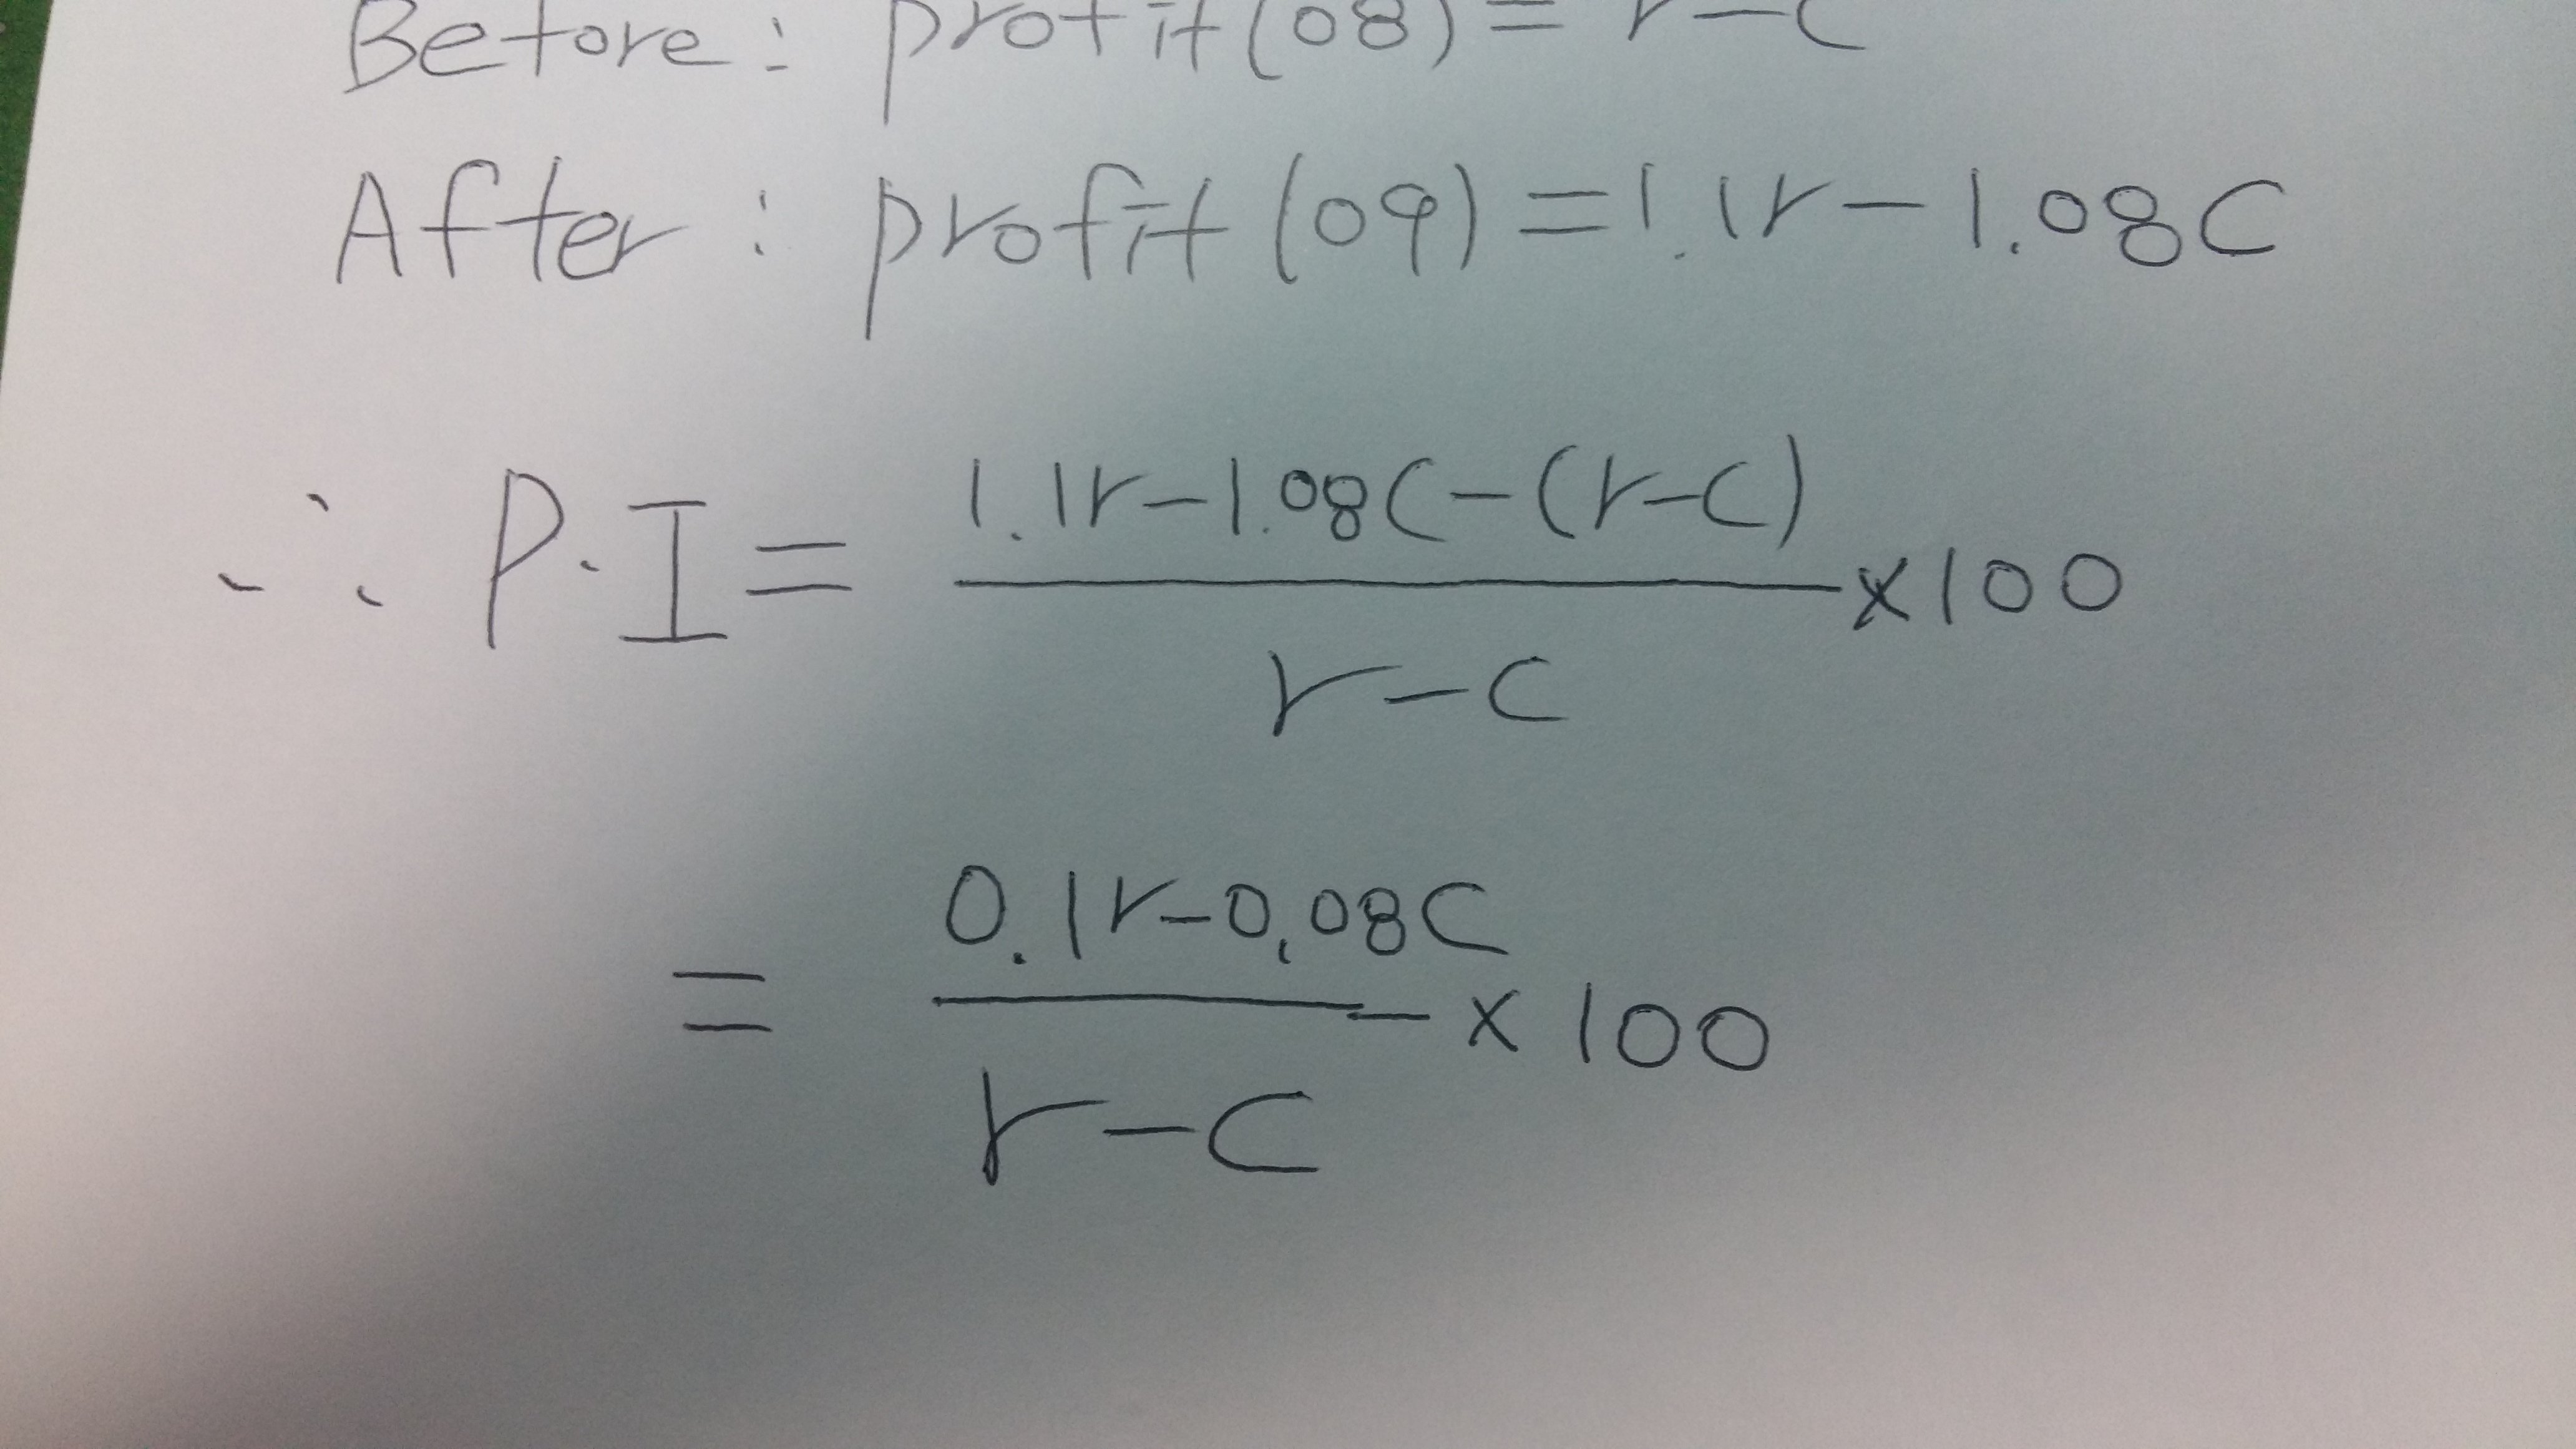 Before: profit(08) = r-c
After: profit(09) = 1.1r - 1.08C
∴ P.I = 1.1r-1.08C-(r-c) / r-c ×100
= 0.1r-0.08C / r-c × 100